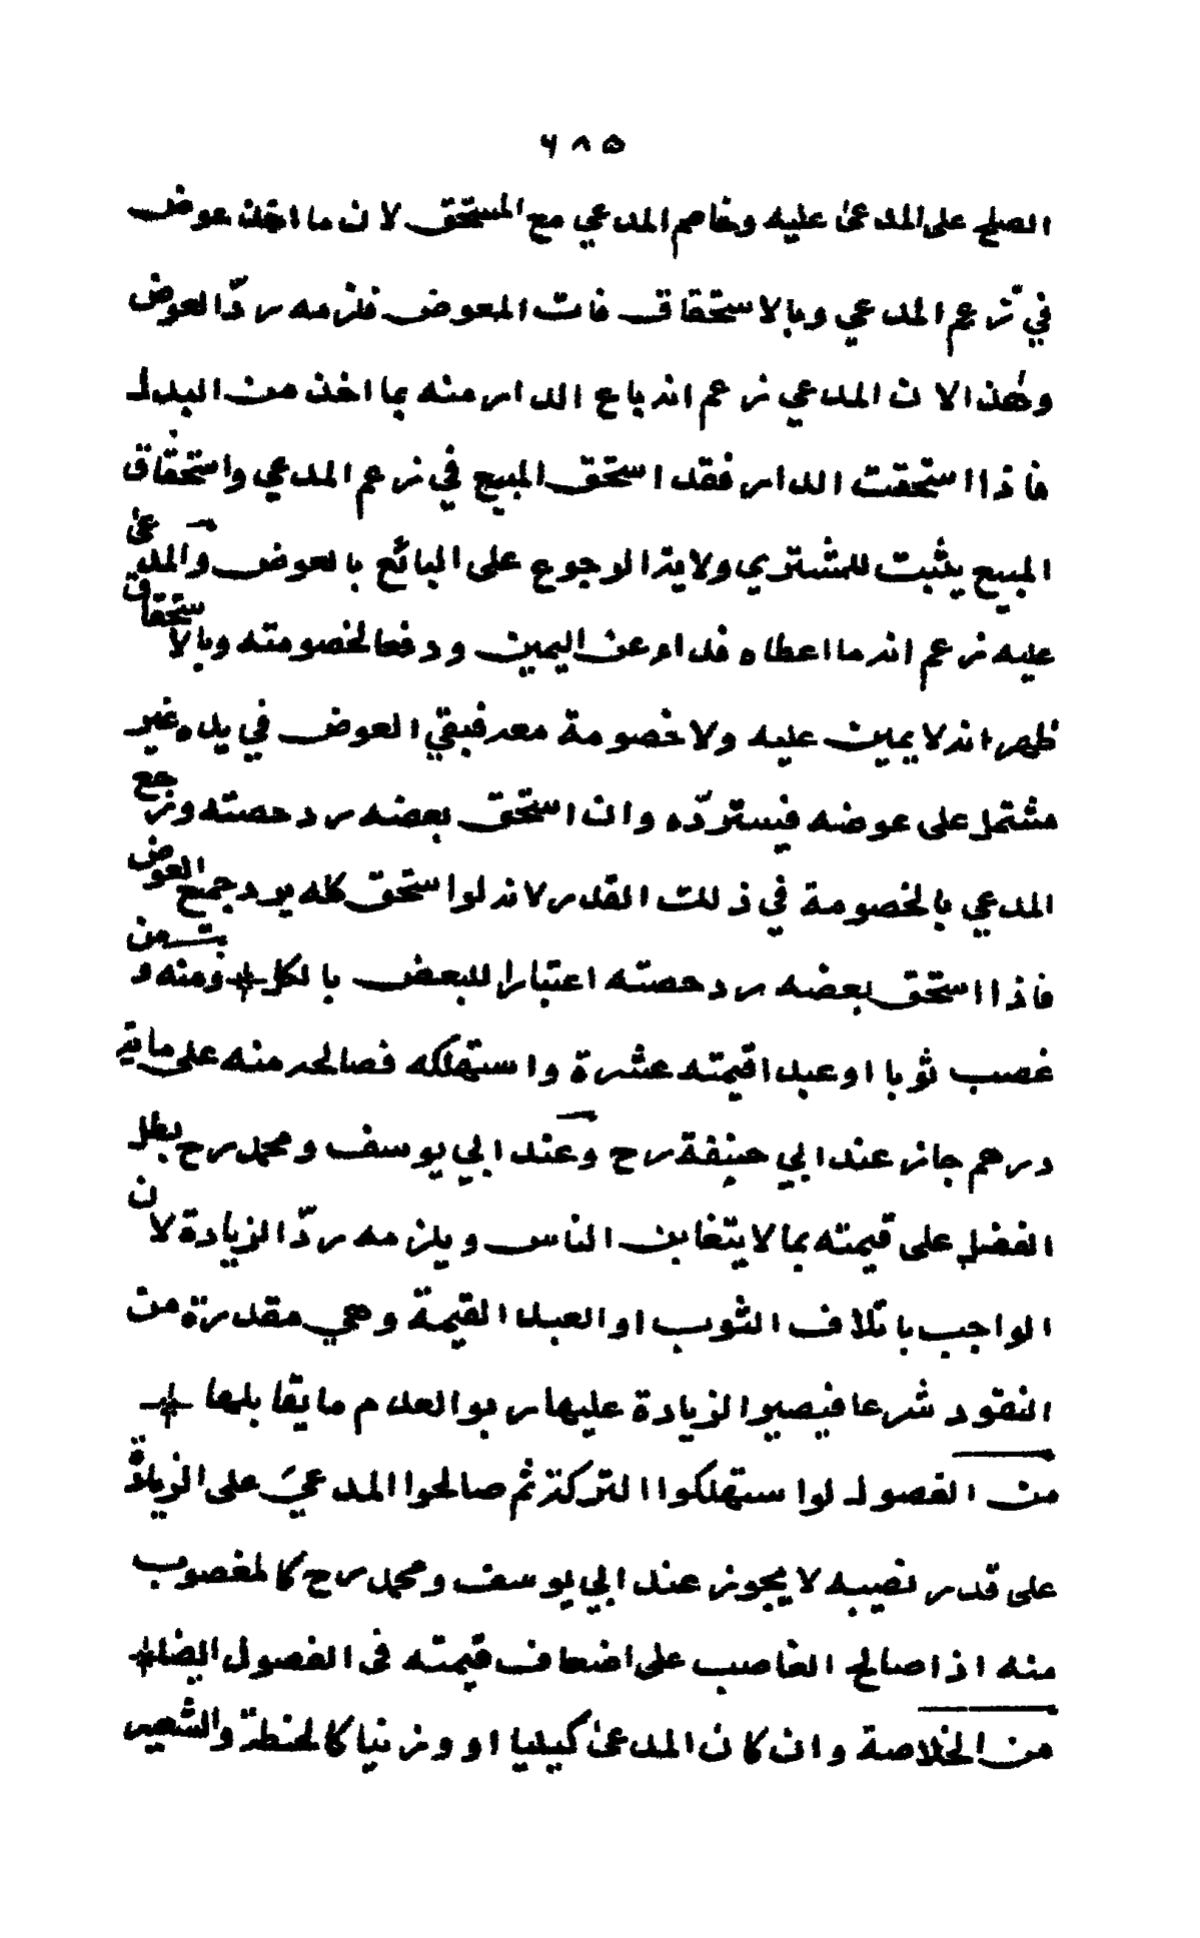 ۶۸۵
الصلح على المدعى عليه وخاصم المدعي مع المستحق لان ما اخذه عوض
في زعم المدعي وبالاستحقاق فات المعوض فلزمه ردّ العوض
وهذا لان المدعي زعم انه باع الدار منه بما اخذ من البدل
فاذا استحقت الدار فقد استحق المبيع في زعم المدعي واستحقاق
المبيع يثبت للمشتري ولاية الرجوع على البائع بالعوض والمدعى
عليه زعم انه ما اعطاه فداء عن اليمين ودفعا لخصومته وبالاستحقاق
ظهر انه لا يمين عليه ولا خصومة معه فبقي العوض في يده غير
مشتمل على عوضه فيستردّه وان استحق بعضه رد حصته ورجع
المدعي بالخصومة في ذلك القدر لانه لو استحق كله يرد جميع العوض
فاذا استحق بعضه رد حصته اعتبارا للبعض بالكل ومنه ومن
غصب ثوبا او عبدا قيمته عشرة واستهلكه فصالحه منه على ماية
درهم جاز عند ابي حنيفة رح وعند ابي يوسف ومحمد رح بطل
الفضل على قيمته بما لا يتغابن الناس ويلزمه ردّ الزيادة لان
الواجب باتلاف الثوب او العبد القيمة وهي مقدرة من
النقود شرعا فيصير الزيادة عليها ربوا لعدم ما يقابلها
من الفصول لو استهلكوا التركة ثم صالحوا المدعي على الزيادة
على قدر نصيبه لا يجوز عند ابي يوسف ومحمد رح كالمغصوب
منه اذا صالح الغاصب على اضعاف قيمته فى الفصول ايضا
من الخلاصة وان كان المدعى كيليا او وزنيا كالحنطة والشعير